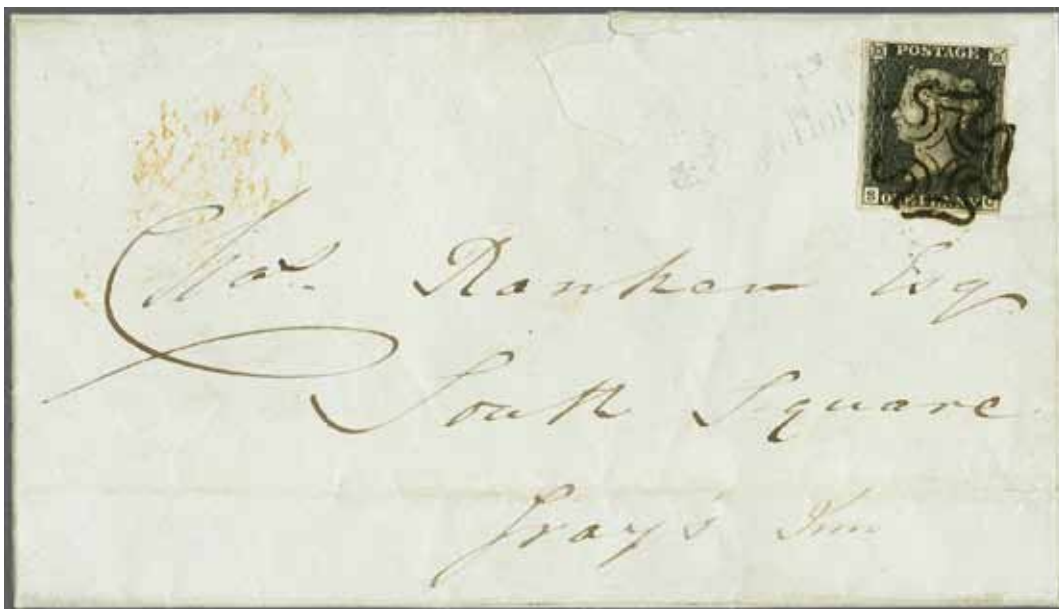 POSTAGE
S ONE PENNY G
Chas. Ranken Esq
South Square
Gray's Inn